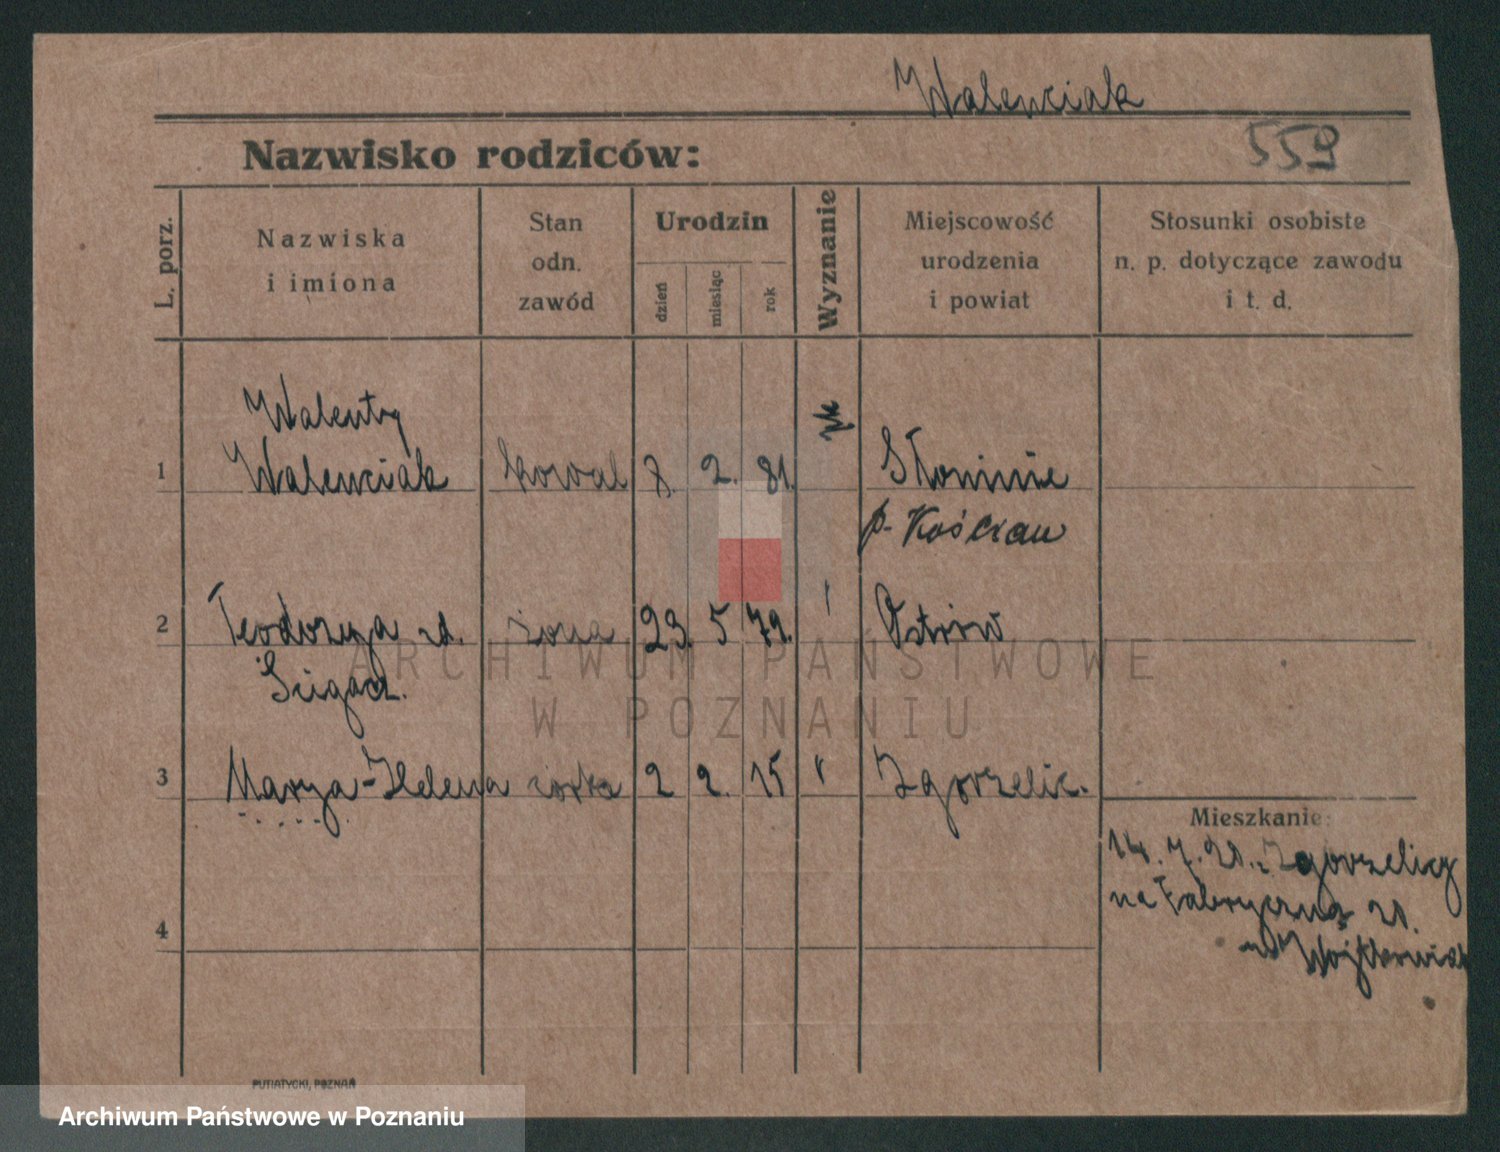 Walenciak
559
Nazwisko rodziców:
L. porz.
Nazwiska
i imiona
Stan
odn.
zawód
Urodzin
dzień
miesiąc
rok
Wyznanie
Miejscowość
urodzenia
i powiat
Stosunki osobiste
n. p. dotyczące zawodu
i t. d.
Walenty
1 Walenciak kowal 8. 2. 81. Słoninie
p. Kościan
2 Teodozya żona 23. 5 79. Ostrów
3 Marya-Helena córka 2 2. 15 Zgorzelic.
Mieszkanie:
14. 7. 21. Zgorzelicy
na Fabryczną 21.
4
ARCHIWUM PAŃSTWOWE
W POZNANIU
PUTIATYCKI, POZNAŃ
Archiwum Państwowe w Poznaniu